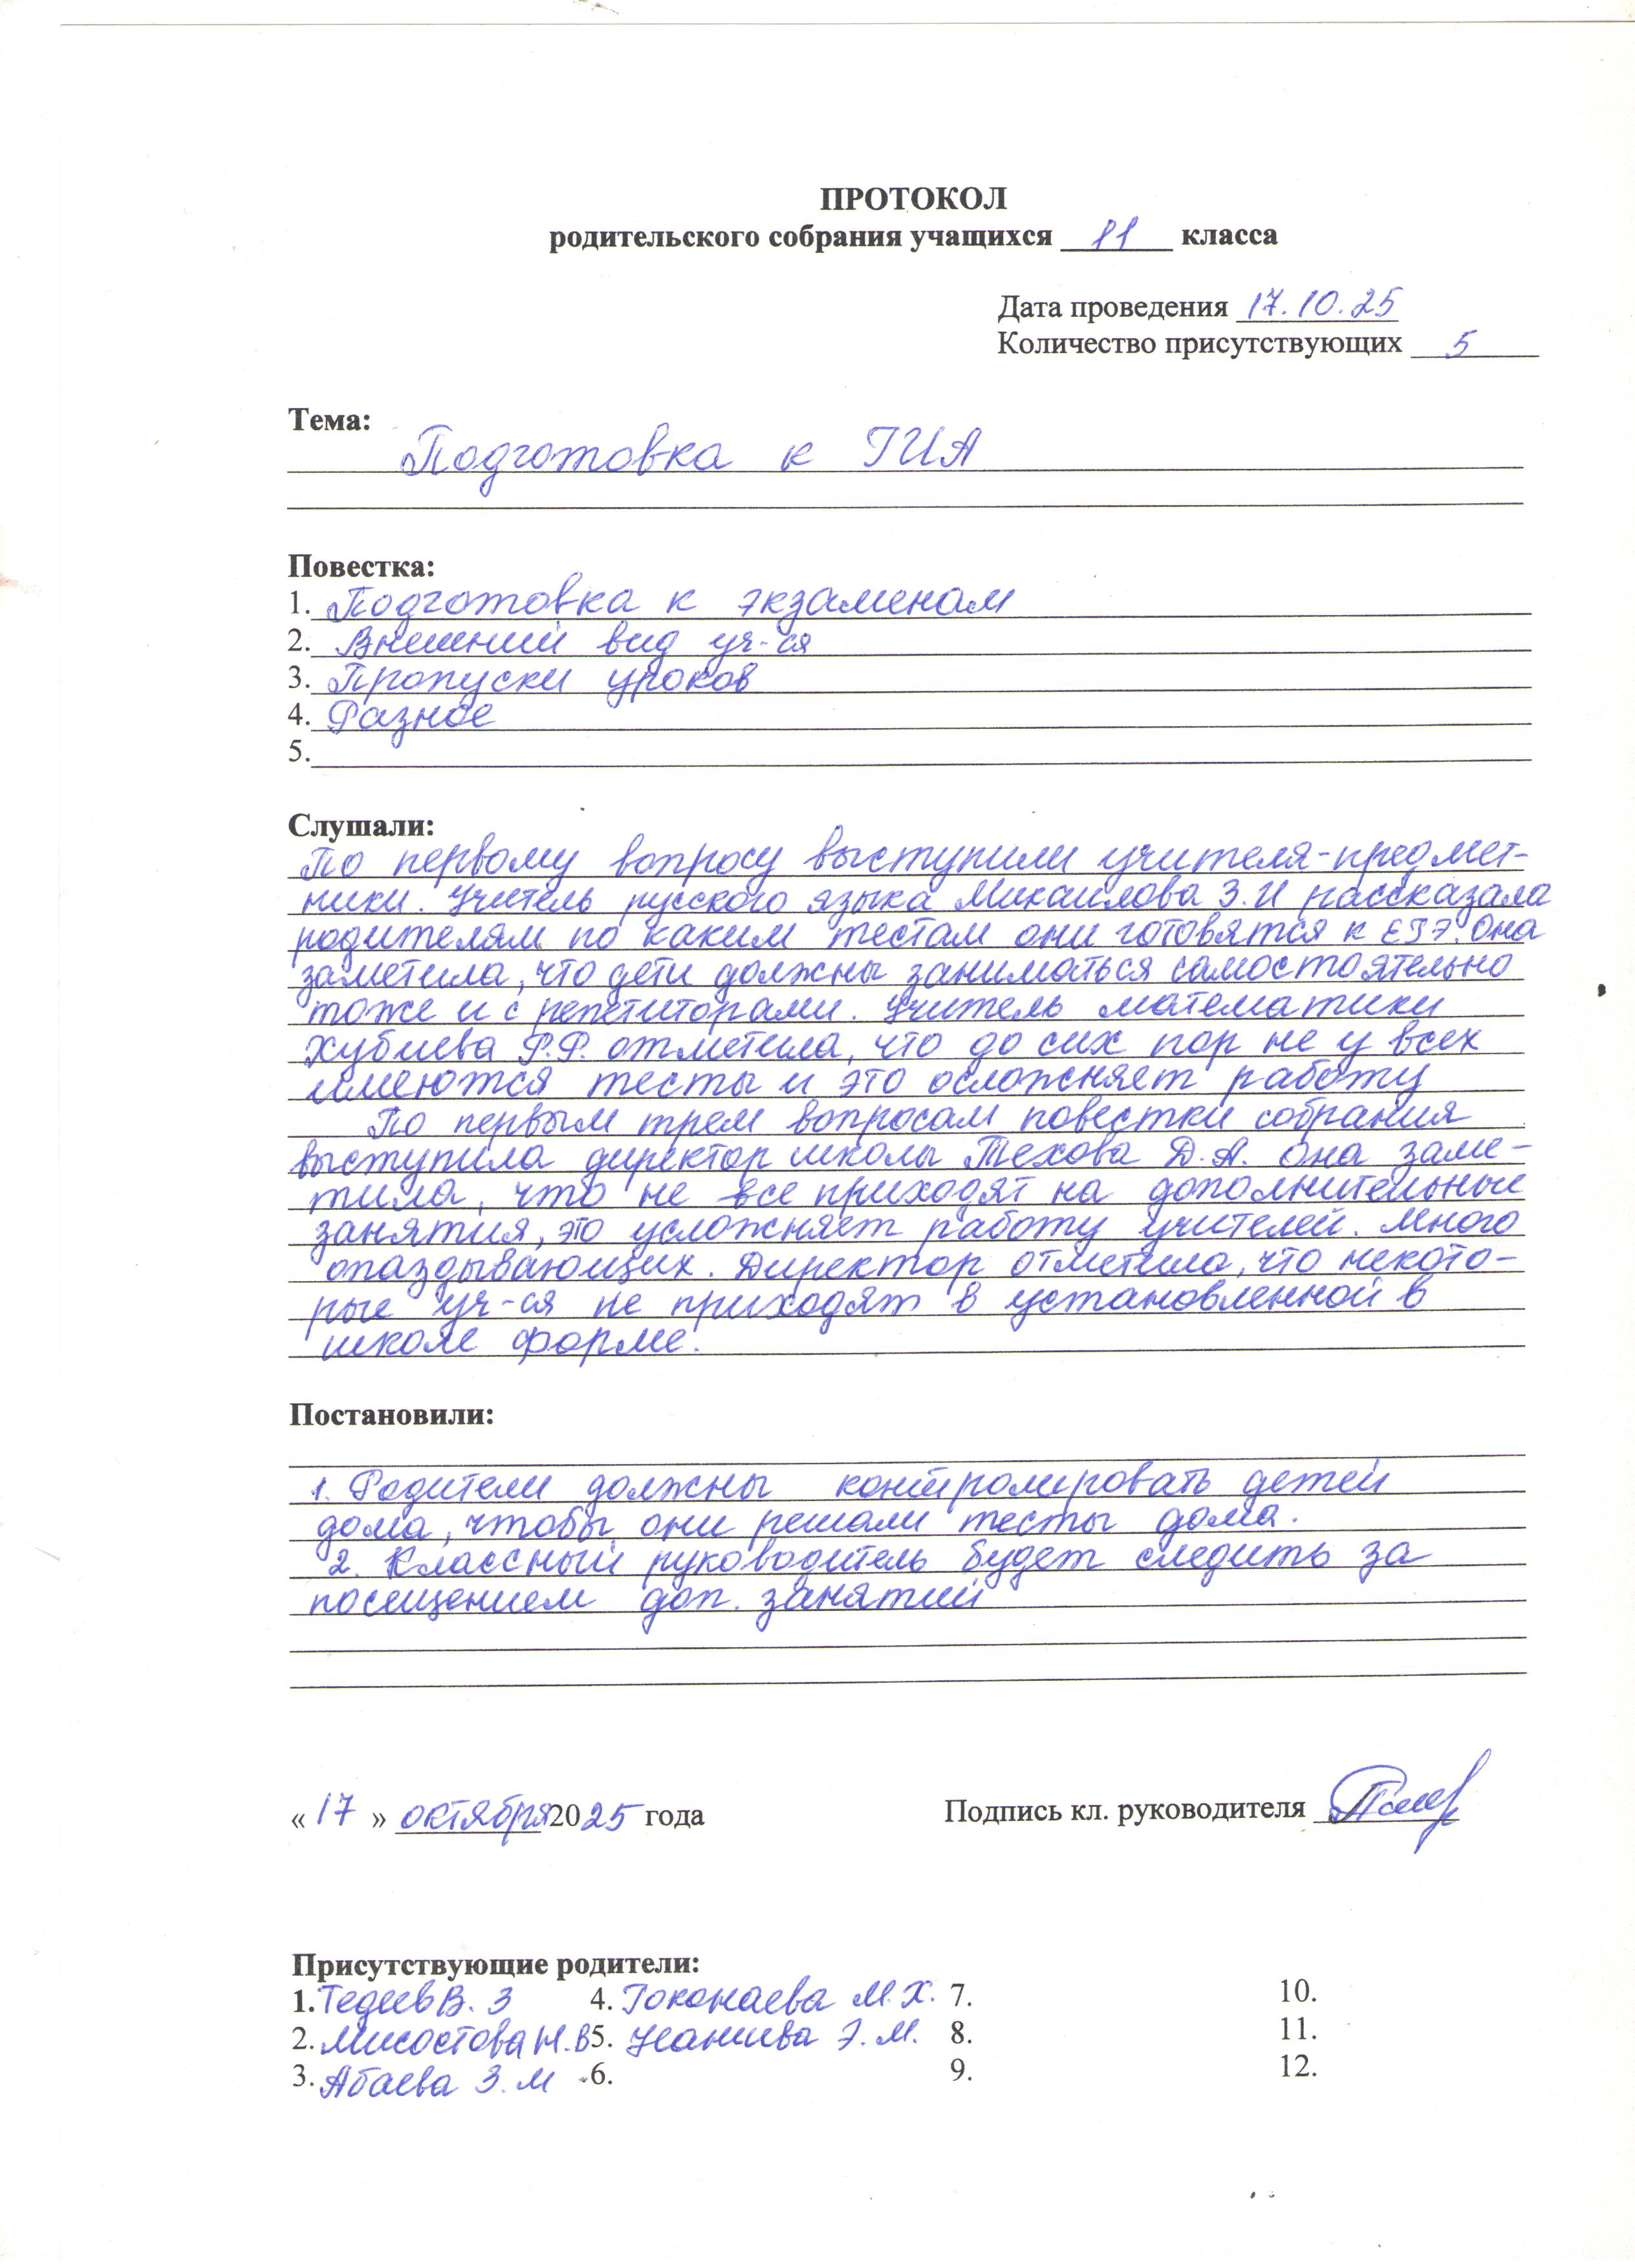 ПРОТОКОЛ
родительского собрания учащихся 11 класса
Дата проведения 17.10.25
Количество присутствующих 5
Тема:
Подготовка к ГИА
Повестка:
1. Подготовка к экзаменам
2. Внешний вид уч-ся
3. Пропуски уроков
4. Разное
5.
Слушали:
По первому вопросу выступили учителя-предмет-
ники. Учитель русского языка Микаилова З.И рассказала
родителям по каким тестам они готовятся к ЕГЭ. Она
заметила, что дети должны заниматься самостоятельно
тоже и с репетиторами. Учитель математики
Хубиева Р.Р. отметила, что до сих пор не у всех
имеются тесты и это осложняет работу
По первым трем вопросам повестки собрания
выступила директор школы Техова Д.А. Она заме-
тила, что не все приходят на дополнительные
занятия, это усложняет работу учителей. Много
опаздывающих. Директор отметила, что некото-
рые уч-ся не приходят в установленной в
школе форме.
Постановили:
1. Родители должны контролировать детей
дома, чтобы они решали тесты дома.
2. Классный руководитель будет следить за
посещением доп. занятий
« 17 » октября 2025 года Подпись кл. руководителя
Присутствующие родители:
1. Тедеев В. З 4. Гоконаева М.Х. 7. 10.
2. Мисостова Н.В 5. Э.М. 8. 11.
3. Абаева З.М 6. 9. 12.